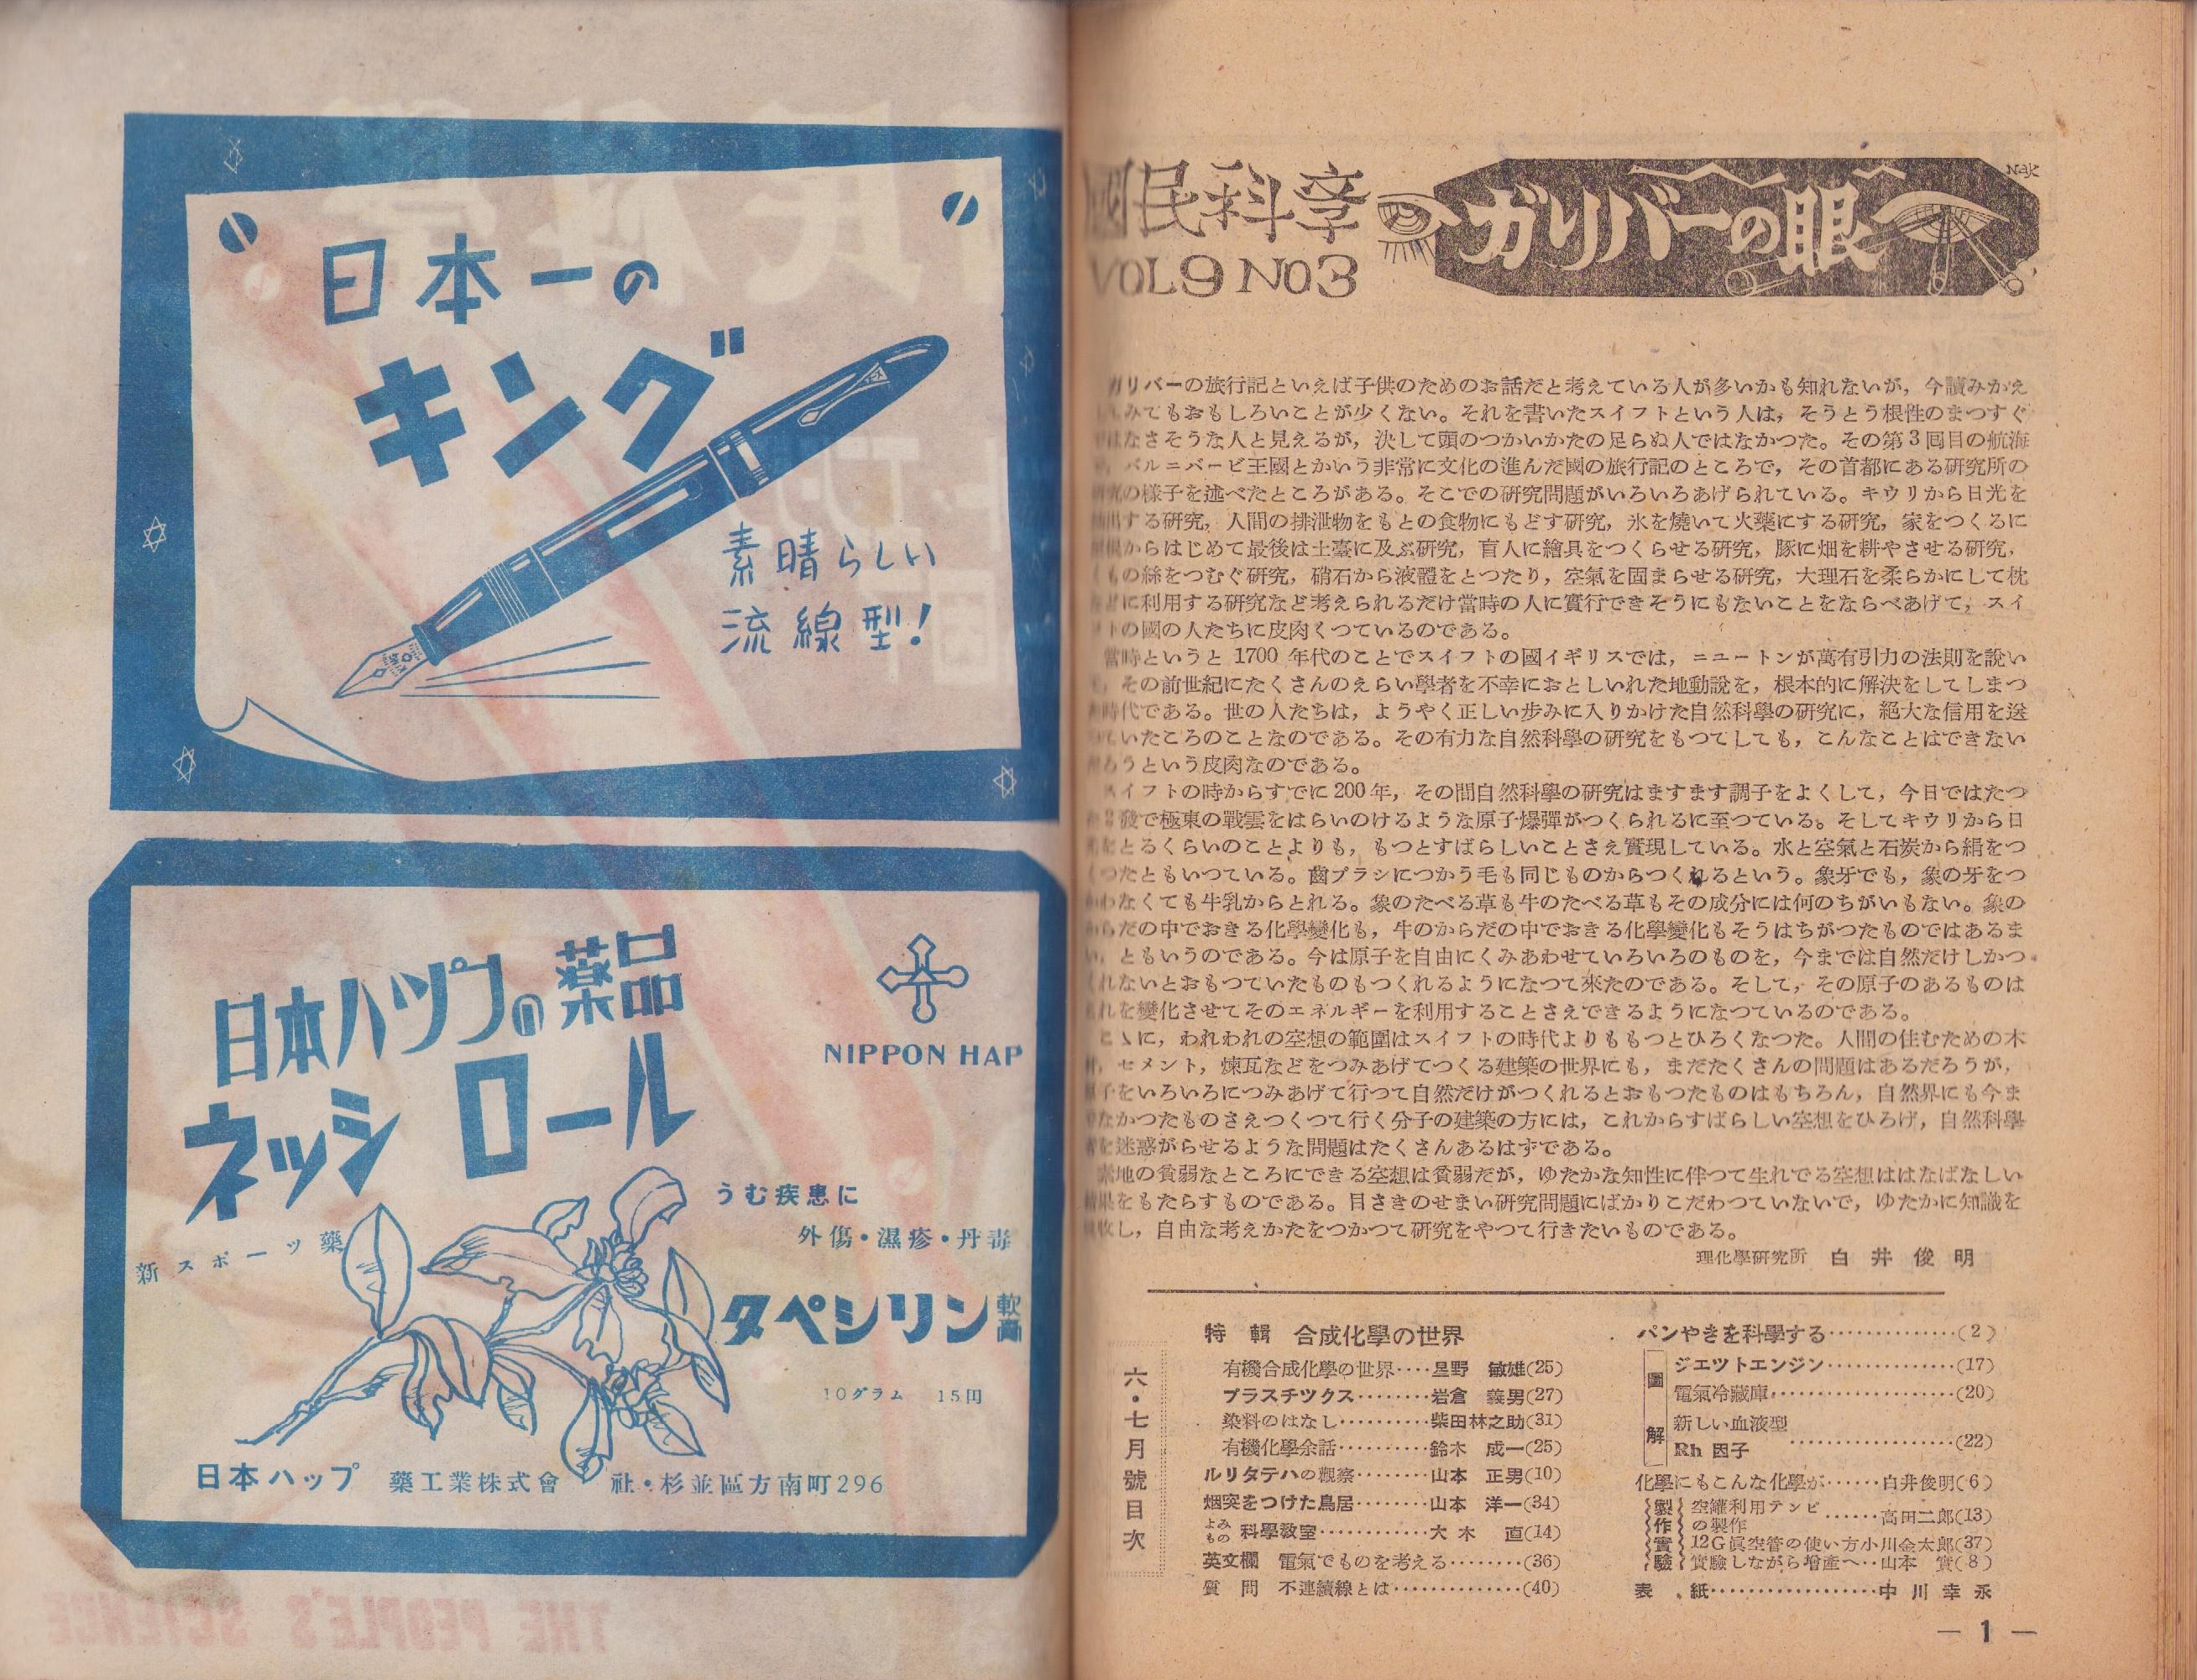 日本一の
キング
素晴らしい
流線型!
日本ハップの薬品
NIPPON HAP
ネッシ ロール
新スポーツ藥
うむ疾患に
外傷・濕疹・丹毒
タペシリン軟膏
10グラム 15円
日本ハップ 藥工業株式會社・杉並區方南町296
THE PEOPLE'S SCIENCE
國民科学
VOL9 NO3
ガリバーの眼
ガリバーの旅行記といえば子供のためのお話だと考えている人が多いかも知れないが，今讀みかえ
みてもおもしろいことが少くない。それを書いたスイフトという人は，そうとう根性のまつすぐ
はなさそうな人と見えるが，決して頭のつかいかたの足らぬ人ではなかつた。その第3回目の航海
，バルニバービ王國とかいう非常に文化の進んだ國の旅行記のところで，その首都にある研究所の
研究の様子を述べたところがある。そこでの研究問題がいろいろあげられている。キウリから日光を
抽出する研究，人間の排泄物をもとの食物にもどす研究，氷を燒いて火藥にする研究，家をつくるに
屋根からはじめて最後は土臺に及ぶ研究，盲人に繪具をつくらせる研究，豚に畑を耕やさせる研究，
くもの絲をつむぐ研究，硝石から液體をとつたり，空氣を固まらせる研究，大理石を柔らかにして枕
などに利用する研究など考えられるだけ當時の人に實行できそうにもないことをならべあげて，スイ
フトの國の人たちに皮肉くつているのである。
當時というと 1700 年代のことでスイフトの國イギリスでは，ニユートンが萬有引力の法則を說い
，その前世紀にたくさんのえらい學者を不幸におとしいれた地動說を，根本的に解決をしてしまつ
た時代である。世の人たちは，ようやく正しい歩みに入りかけた自然科學の研究に，絕大な信用を送
つていたころのことなのである。その有力な自然科學の研究をもつてしても，こんなことはできない
だろうという皮肉なのである。
スイフトの時からすでに 200 年，その間自然科學の研究はますます調子をよくして，今日ではたつ
た2發で極東の戰雲をはらいのけるような原子爆彈がつくられるに至つている。そしてキウリから日
光をとるくらいのことよりも，もつとすばらしいことさえ實現している。水と空氣と石炭から絹をつ
くつたともいつている。齒ブラシにつかう毛も同じものからつくれるという。象牙でも，象の牙をつ
かわなくても牛乳からとれる。象のたべる草も牛のたべる草もその成分には何のちがいもない。象の
からだの中でおきる化學變化も，牛のからだの中でおきる化學變化もそうはちがつたものではあるま
い，ともいうのである。今は原子を自由にくみあわせていろいろのものを，今までは自然だけしかつ
くれないとおもつていたものもつくれるようになつて來たのである。そして，その原子のあるものは
これを變化させてそのエネルギーを利用することさえできるようになつているのである。
こゝに，われわれの空想の範圍はスイフトの時代よりももつとひろくなつた。人間の住むための木
材，セメント，煉瓦などをつみあげてつくる建築の世界にも，まだたくさんの問題はあるだろうが，
原子をいろいろにつみあげて行つて自然だけがつくれるとおもつたものはもちろん，自然界にも今ま
でなかつたものさえつくつて行く分子の建築の方には，これからすばらしい空想をひろげ，自然科學
者を迷惑がらせるような問題はたくさんあるはずである。
素地の貧弱なところにできる空想は貧弱だが，ゆたかな知性に伴つて生れでる空想ははなばなしい
結果をもたらすものである。目さきのせまい研究問題にばかりこだわつていないで，ゆたかに知識を
吸收し，自由な考えかたをつかつて研究をやつて行きたいものである。
理化學研究所 白井俊明
六・七月號目次
特輯 合成化學の世界
有機合成化學の世界····星野 敏雄(25)
プラスチツクス·········岩倉 義男(27)
染料のはなし··········柴田林之助(31)
有機化學余話··········鈴木 成一(25)
ルリタテハの觀察········山本 正男(10)
烟突をつけた鳥居········山本 洋一(34)
よみもの 科學教室············大木 直(14)
英文欄 電氣でものを考える········(36)
質問 不連續線とは··············(40)
パンやきを科學する··············(2)
圖解
ジエツトエンジン··············(17)
電氣冷藏庫····················(20)
新しい血液型
Rh 因子 ··················(22)
化學にもこんな化學が······白井俊明(6)
製作實驗
空罐利用テンピの製作······高田二郎(13)
12G眞空管の使い方小川金太郎(37)
實驗しながら增產へ··山本 實(8)
表紙··················中川幸永
— 1 —